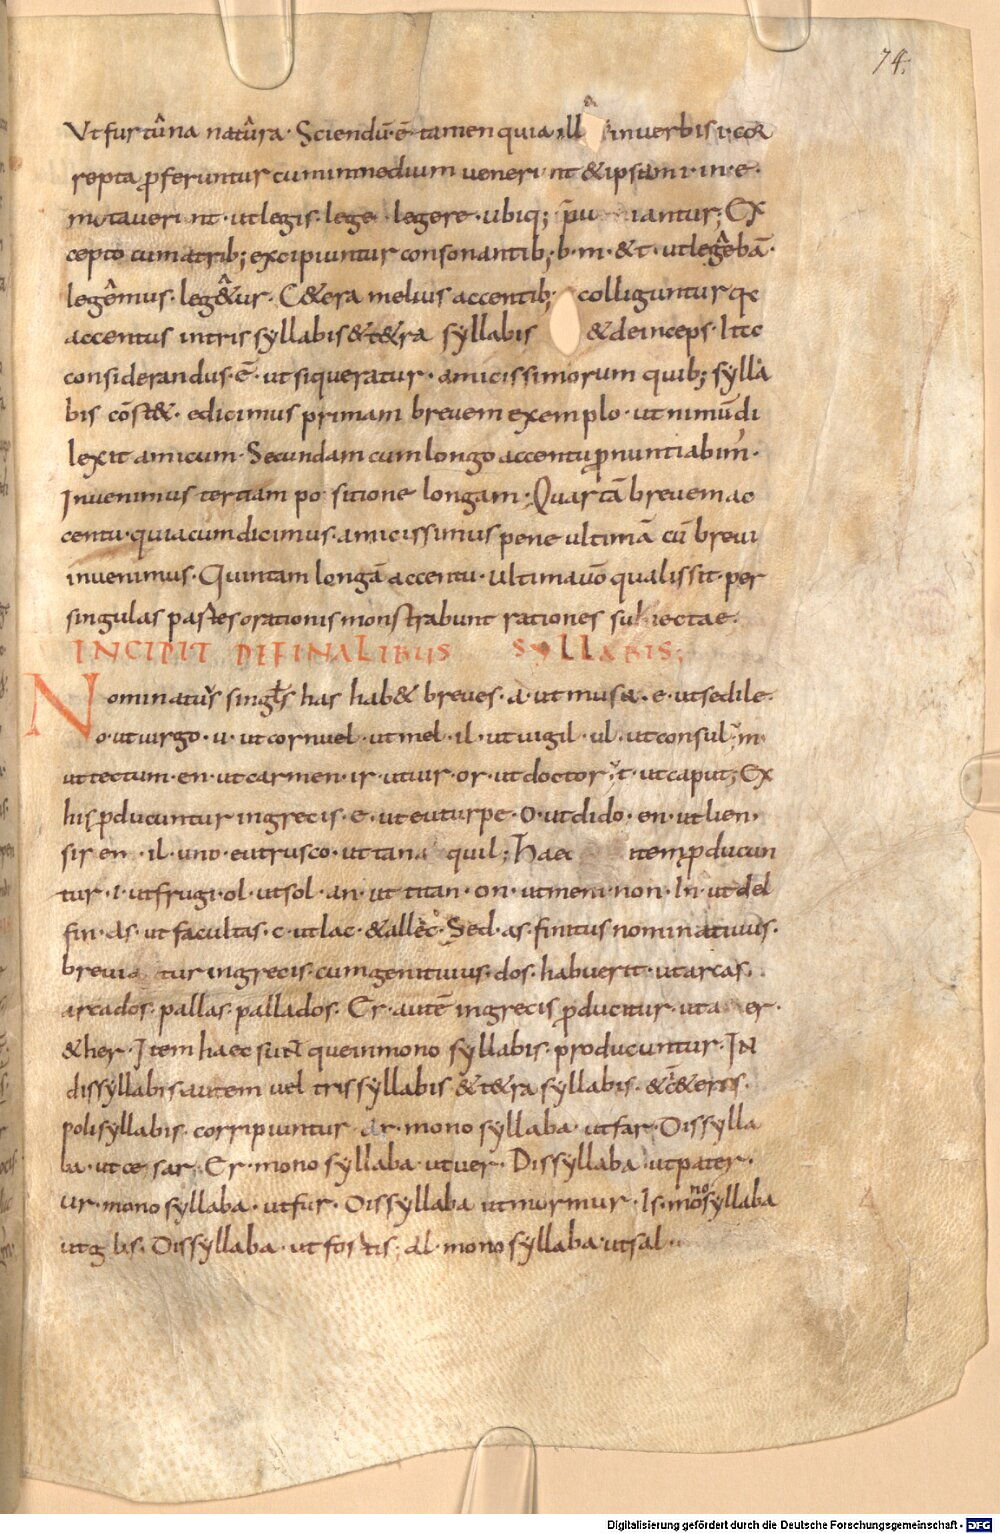 74.
Vt furtûna natûra· Sciendū·ē· tamen quia ill inuerbis i· cor
repta ꝓferuntur cum inmedium uenerint &ipsam i· in· e·
mutauerint· ut legis· lege· legere· ubiq; iantur; Ex
cepto cum atrib; excipiuntur consonantib; b· m· &t· ut legêbā·
legêmus· leg&ur· C&era melius accentib; colliguntur qe
accentus intris syllabis &t&ra syllabis &deinceps·
considerandus·ē· ut siqueratur· amicissimorum quib; sylla
bis cōst&· edicimus primam breuem exemplo· ut nimūdi
lexit amicum· Secundam cum longo accentu ꝓnuntiabim'·
Inuenimus tertiam po sitione longam· Quartā breuem ac
centu· quia cum dicimus· amicissimus pene ultimā cū breui
inuenimus· Quintam longā accentu· Ultima uō qualis sit· per
singulas partes orationis monstrabunt rationes subiectae·
INCIPIT DEFINALIBUS SYLLABIS;
Nominatus sing̅l̅s has hab& breues· a· ut musa· e· ut sedile·
o· ut uirgo· u· ut cornu el· ut mel· il· ut uigil· ul· ut consul· um·
ut tectum· en· ut carmen· ir· ut uir· or· ut doctor· ut· ut caput; Ex
his ꝓducuntur ingrecis· e· ut euturpe· o· ut dido· en· ut lien·
siren· il· uno· eutrusco· ut tana quil; Haec item ꝓducun
tur· i· ut frugi· ol· ut sol· an· ut titan· on· ut memnon· In· ut del
fin· as· ut facultas· c· ut lac· &allec· Sed· as· finitus nominatiuus·
breuia tur ingrecis· cum genitiuus· dos· habuerit· ut arcas·
arcados· pallas· pallados· Er· autē ingrecis ꝓducitur· ut a er·
&her· Item haec sunt que inmono syllabis· producuntur· IN
dissyllabis· autem uel trissyllabis &t&ra syllabis· &c&eris·
polisyllabis· corripiuntur ar· mono syllaba· ut far· Dissylla
ba· ut ce sar· Er· mono syllaba· ut uer· Dissyllaba· ut pater·
ur· mono syllaba· ut fur· Dissyllaba ut murmur· Is· monosyllaba
ut g lis· Dissyllaba· ut fortis; al· mono syllaba· ut sal··
Digitalisierung gefördert durch die Deutsche Forschungsgemeinschaft - DFG